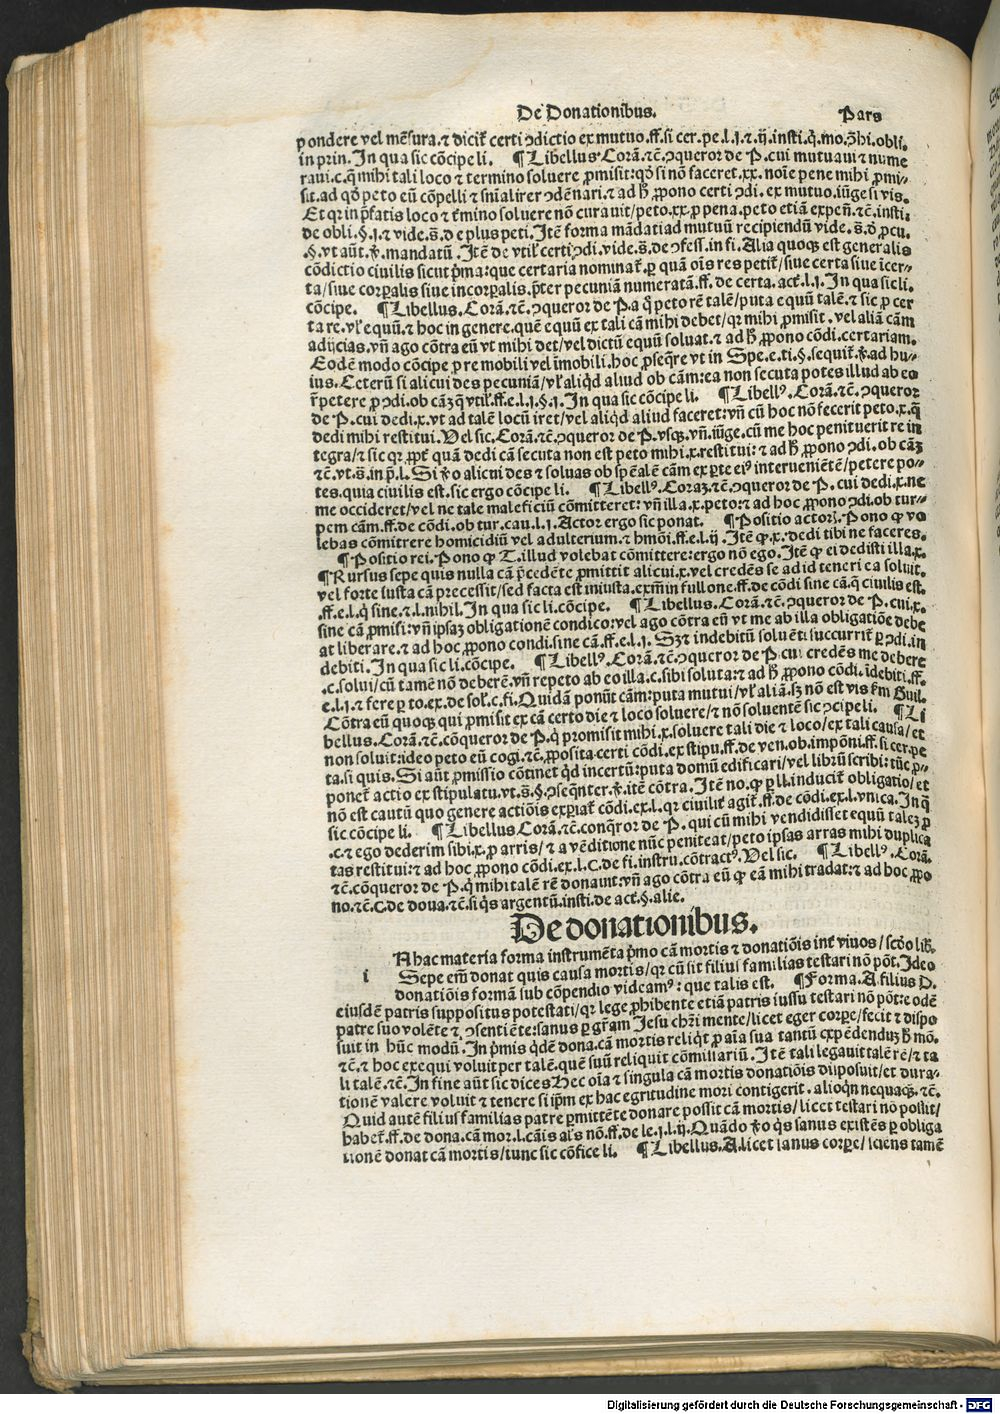 De Donationibus. Pars
pondere vel mẽsura.⁊ dicit̃ certi ↄdictio ex mutuo.ff.si cer.pe.l.j.⁊.ij.insti.q̃.mo.ↄ̃hi.obli.
in prin. In qua sic cõcipe li. ¶Libellus. Corã.⁊c̃.ↄqueror de P.cui mutuaui ⁊ nume
raui.c.q̃ mihi tali loco ⁊ termino soluere ꝓmisit:qd̛ si nõ faceret.xx.noĩe pene mihi ꝓmi⸗
sit.ad qd̛ peto eũ cõpelli ⁊ sñialirer ↄdẽnari.⁊ ad h̃ ꝓpono certi ↄdi.ex mutuo.iũge si vis.
Et qr in p̃fatis loco ⁊ t̃mino soluere nõ curauit/peto.xx.ꝓ pena.peto etiã expeñ.⁊c̃.insti.
de obli.§.j.⁊ vide.s̃.de plus peti. Itẽ forma mãdati ad mutuũ recipiendũ vide.s̃.d̛ ꝓcu.
§.vt aũt.ꝟ.mandatũ. Itẽ de vtil̃ certi ↄdi.vide.s̃.de ↄfess.in fi. Alia quoqꝫ est generalis
cõdictio ciuilis sicut p̃ma:que certaria nominat̃.ꝑ quã oĩs res petit̃/siue certa siue ĩcer⸗
ta/siue corꝑalis siue incorꝑalis.p̃ter pecuniã numeratã.ff.de certa.act̃.l.j. In qua sic li.
cõcipe. ¶Libellus. Corã.⁊c̃.ↄqueror de P.a q̃ peto rẽ talẽ/puta equũ talẽ.⁊ sic ꝓ cer
ta re.vl̃ equũ.⁊ hoc in genere.quẽ equũ ex tali cã mihi debet/qr mihi ꝓmisit.vel aliã cãm
adijcias.vñ ago cõtra eũ vt mihi det/vel dictũ equũ soluat.⁊ ad h̃ ꝓpono cõdi.certariam.
Eodẽ modo cõcipe ꝓ re mobili vel ĩmobili.hoc ꝓseq̃re vt in Spe.e.ti.§.sequit̃.ꝟ.ad hu⸗
ius. Ceterũ si alicui des pecuniã/vl̃ aliq̃d aliud ob cãm:ea non secuta potes illud ab eo
r̃petere ꝓ ↄdi.ob cãꝫ q̃ vtil̃.ff.e.l.j.§.j. In qua sic cõcipe li. ¶Libell⁹. Corã.⁊c̃.ↄqueror
de P.cui dedi.x.vt ad talẽ locũ iret/vel aliq̃d aliud faceret:vñ cũ hoc nõ fecerit peto.x.q̃
dedi mihi restitui. Vel sic. Corã.⁊c̃.ↄqueror de P.vsqꝫ.vñ.iũge.cũ me hoc penituerit re in
tegra/⁊ sic qr ꝓpt̃ quã dedi cã secuta non est peto mihi.x.restitui:⁊ ad h̃ ꝓpono ↄdi.ob cãꝫ
⁊c̃.vt.s̃.in p̃.l. Si ꝟo alicui des ⁊ soluas ob sp̃ealẽ cãm ex ꝑte ei⁹ interueniẽtẽ/petere po⸗
tes.quia ciuilis est.sic ergo cõcipe li. ¶Libell⁹. Coraꝫ.⁊c̃.ↄqueror de P. cui dedi.x.ne
me occideret/vel ne tale maleficiũ cõmitteret:vñ illa.x.peto:⁊ ad hoc ꝓpono/ↄdi.ob tur⸗
pem cãm.ff.de cõdi.ob tur.cau.l.j. Actor ergo sic ponat. ¶Positio actorꝭ. Pono ꝙ vo
lebas cõmitrere homicidiũ vel adulterium.⁊ hmõi.ff.e.l.ij. Itẽ ꝙ.x.dedi tibi ne faceres.
¶Positio rei. Pono ꝙ T.illud volebat cõmittere:ergo nõ ego. Itẽ ꝙ ei dedisti illa.x.
¶Rursus sepe quis nulla cã p̃cedẽte ꝓmittit alicui.x.vel credẽs se ad id teneri ea soluit.
vel forte iusta cã precessit/sed facta est iniusta.exm̃ in fullone.ff.de cõdi sine cã.q̃ ciuilis est.
.ff.e.l.q̃ sine.⁊.l.nihil. In qua sic li.cõcipe. ¶Libellus. Corã.⁊c̃.ↄqueror de P.cui.x.
sine cã ꝓmisi:vñ ipsaꝫ obligationẽ condico:vel ago cõtra eũ vt me ab illa obligatiõe debe
at liberare.⁊ ad hoc ꝓpono condi.sine cã.ff.e.l.j. Sꝫ ⁊ indebitũ soluẽti succurrit̃ ꝑ ↄdi.in
debiti. In qua sic li.cõcipe. ¶Libell⁹. Corã.⁊c̃.ↄqueror de P.cui credẽs me debere
.c.solui/cũ tamẽ nõ deberẽ.vñ repeto ab eo illa.c.sibi soluta:⁊ ad h̃ ꝓpono cõdi.ĩdebiti.ff.
e.l.j.⁊ fere ꝑ to.ex.de sol̃.c.fi. Quidã ponũt cãm:puta mutui/vl̃ aliã.sꝫ nõ est vis k̃m Guil.
Cõtra eũ quoqꝫ qui ꝓmisit ex cã certo die ⁊ loco soluere/⁊ nõ soluentẽ sic ↄcipe li. ¶Li
bellus. Corã.⁊c̃.cõqueror de P.q̃ promisit mihi.x.soluere tali die ⁊ loco/ex tali causa/et
non soluit:ideo peto eũ cogi.⁊c̃.ꝓposita certi cõdi.ex stipu.ff.de ven.ob.impõni.ff.si cer.pe
ta.si quis. Si aũt ꝓmissio cõtinet q̃d incertũ:puta domũ edificari/vel librũ scribi:tũc ꝓ⸗
ponet̃ actio ex stipulatu.vt.s̃.§.ↄseq̃nter.ꝟ.itẽ cõtra. Itẽ no.ꝙ ꝑ ll.inducit̃ obligatio/et
nõ est cautũ quo genere actiõis exꝑiat̃ cõdi.ex.l.qr ciuilit̃ agit̃.ff.de cõdi.ex.l.vnica. In q̃
sic cõcipe li. ¶Libellus Corã.⁊c̃.conq̃ror de P. qui cũ mihi vendidisset equũ taleꝫ ꝓ
.c.⁊ ego dederim sibi.x.ꝓ arris/⁊ a vẽditione nũc peniteat/peto ipsas arras mihi duplica
tas restitui:⁊ ad hoc ꝓpono cõdi.ex.l.C.de fi.instru.cõtract⁹. Vel sic. ¶Libell⁹. Corã.
⁊c̃.cõqueror de P.q̃ mihi talẽ rẽ donauit:vñ ago cõtra eũ ꝙ eã mihi tradat:⁊ ad hoc ꝓpo
no.⁊c̃.C.de dona.⁊c̃.si q̃s argentũ.insti.de act̃.§.alie.
De donationibus.
Ab hac materia forma instrumẽta p̃mo cã mortis ⁊ donatiõis int̃ viuos/scd̛o lib̃.
i Sepe em̃ donat quis causa mortis/qr cũ sit filius familias testari nõ põt. Ideo
donatiõis formã sub cõpendio videam⁹: que talis est. ¶Forma. A.filius D.
eiusdẽ patris suppositus potestati/qr lege ꝓhibente etiã patris iussu testari nõ põt:e odẽ
patre suo volẽte ⁊ ↄsentiẽte:sanus ꝑ gr̃am Jesu chr̃i mente/licet eger corꝑe/fecit ⁊ dispo
suit in hũc modũ. In p̃mis q̃dẽ dona.cã mortis reliq̃t ꝓ aĩa sua tantũ expẽdenduꝫ h̃ mõ.
⁊c̃.⁊ hoc exequi voluit per talẽ.quẽ suũ reliquit cõmissariũ. Itẽ tali legauit talẽ rẽ/⁊ ta
li talẽ.⁊c̃. In fine aũt sic dices Hec oĩa ⁊ singula cã mortis donatiõis disposuit/et dura⸗
tionẽ valere voluit ⁊ tenere si ip̃m ex hac egritudine mori contigerit.alioq̃n nequaq̃ꝫ.⁊c̃.
Quid autẽ filius familias patre ꝑmittẽte donare possit cã mortis/licet testari nõ possit/
habet̃.ff.de dona.cã mor.l.cãis al̃s nõ.ff.de le.j.l.ij. Quãdo ꝟo q̃s sanus existẽs ꝑ obliga
tionẽ donat cã mortis/tunc sic cõfice li. ¶Libellus. A.licet sanus corꝑe/sciens tamẽ
Digitalisierung gefördert durch die Deutsche Forschungsgemeinschaft - DFG